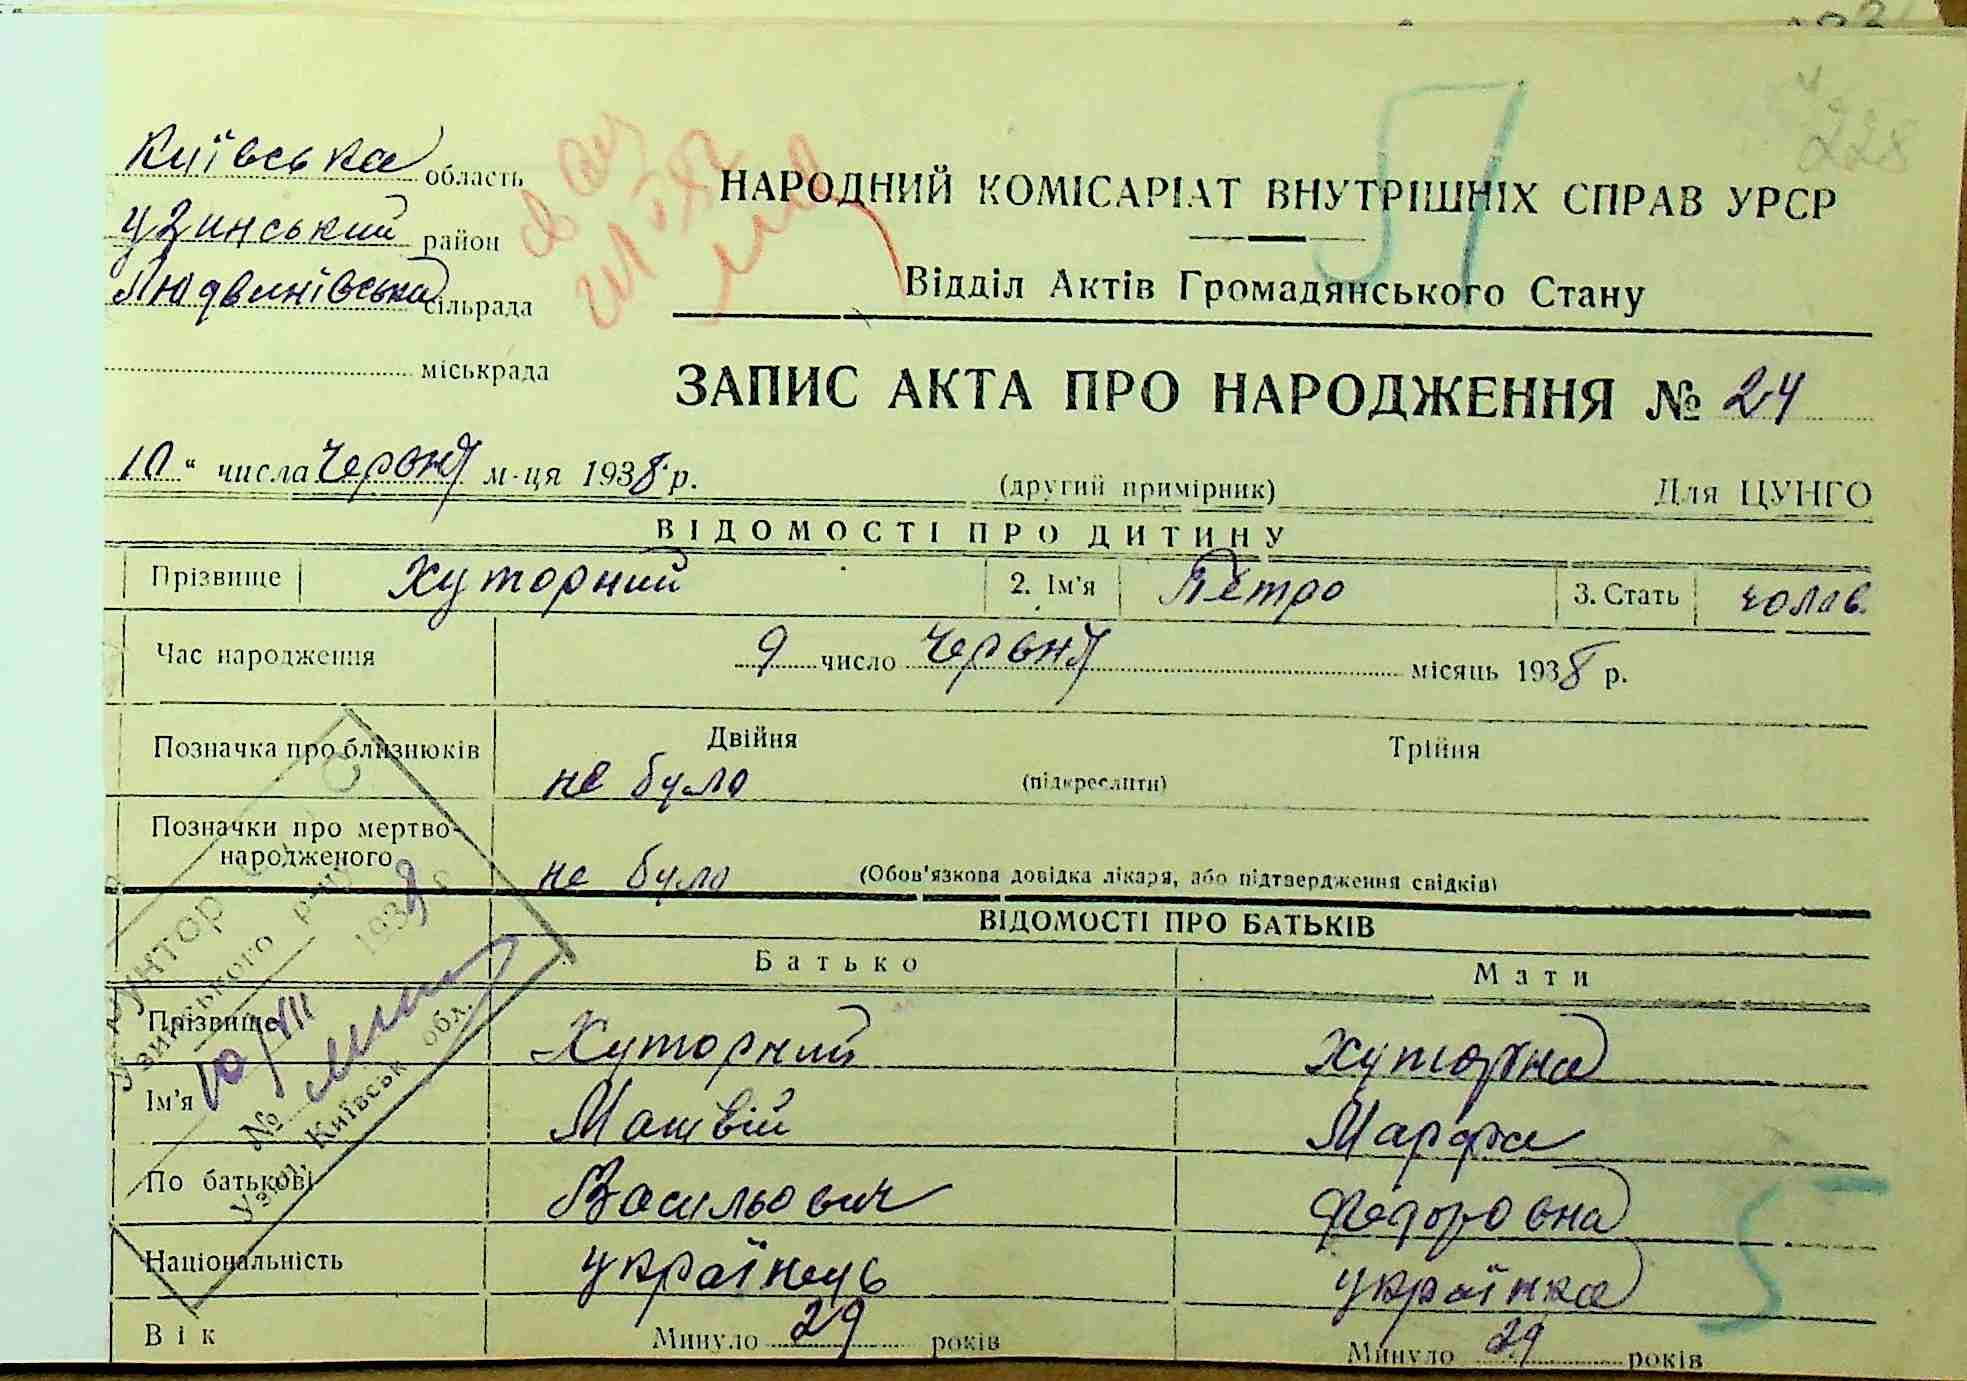 228
Київська область
Узинський район
Людвинівська сільрада
міськрада
НАРОДНИЙ КОМІСАРІАТ ВНУТРІШНІХ СПРАВ УРСР
Відділ Актів Громадянського Стану
ЗАПИС АКТА ПРО НАРОДЖЕННЯ № 24
10 " числа червня м-ця 1938 р.
(другий примірник)
Для ЦУНГО
ВІДОМОСТІ ПРО ДИТИНУ
Прізвище Хуторний 2. Ім'я Петро 3. Стать чолов.
Час народження 9 число червня місяць 1938 р.
Позначка про близнюків Двійня Трійня
не було (підкреслити)
Позначки про мертво-
народженого не було (Обов'язкова довідка лікаря, або підтвердження свідків)
ВІДОМОСТІ ПРО БАТЬКІВ
Батько Мати
Прізвище Хуторний Хуторна
Ім'я Матвій Марфа
По батькові Васильович Федоровна
Національність українець українка
Вік Минуло 29 років Минуло 29 років
Узинського р-ну
10/VII 1938 г
№
Узин, Київськ обл.
5